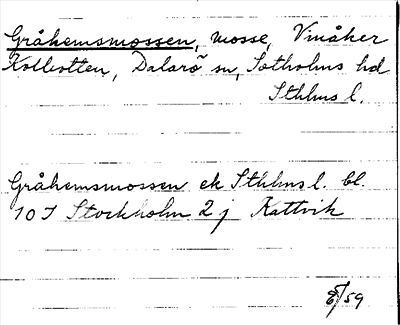 Gråhemsmossen, mosse, Vinåker
Kolbotten, Dalarö sn, Sotholms hd
Sthlms l.
Gråhemsmossen ek Sthlms l. bl.
10 I Stockholm 2 j Kattvik
/59